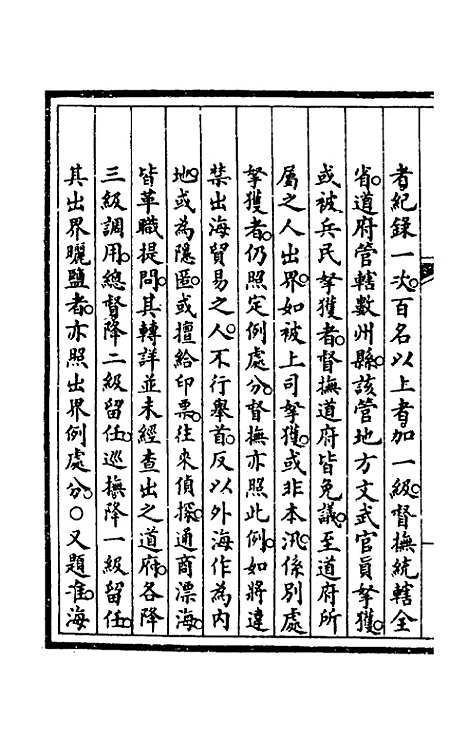 者紀錄一次。百名以上者加一級。督撫統轄全
省。道府管轄數州縣。該管地方文武官員拏獲。
或被兵民拏獲者。督撫道府皆免議。至道府所
屬之人出界。如被上司拏獲。或非本汛係別處
拏獲者。仍照定例處分。督撫亦照此例。如將違
禁出海貿易之人。不行舉首。反以外海作為內
地。或為隱匿。或擅給印票。往來偵探。通商漂海。
皆革職提問。其轉詳並未經查出之道府。各降
三級調用。總督降二級留任。巡撫降一級留任。
其出界曬鹽者。亦照出界例處分。○又題准。海